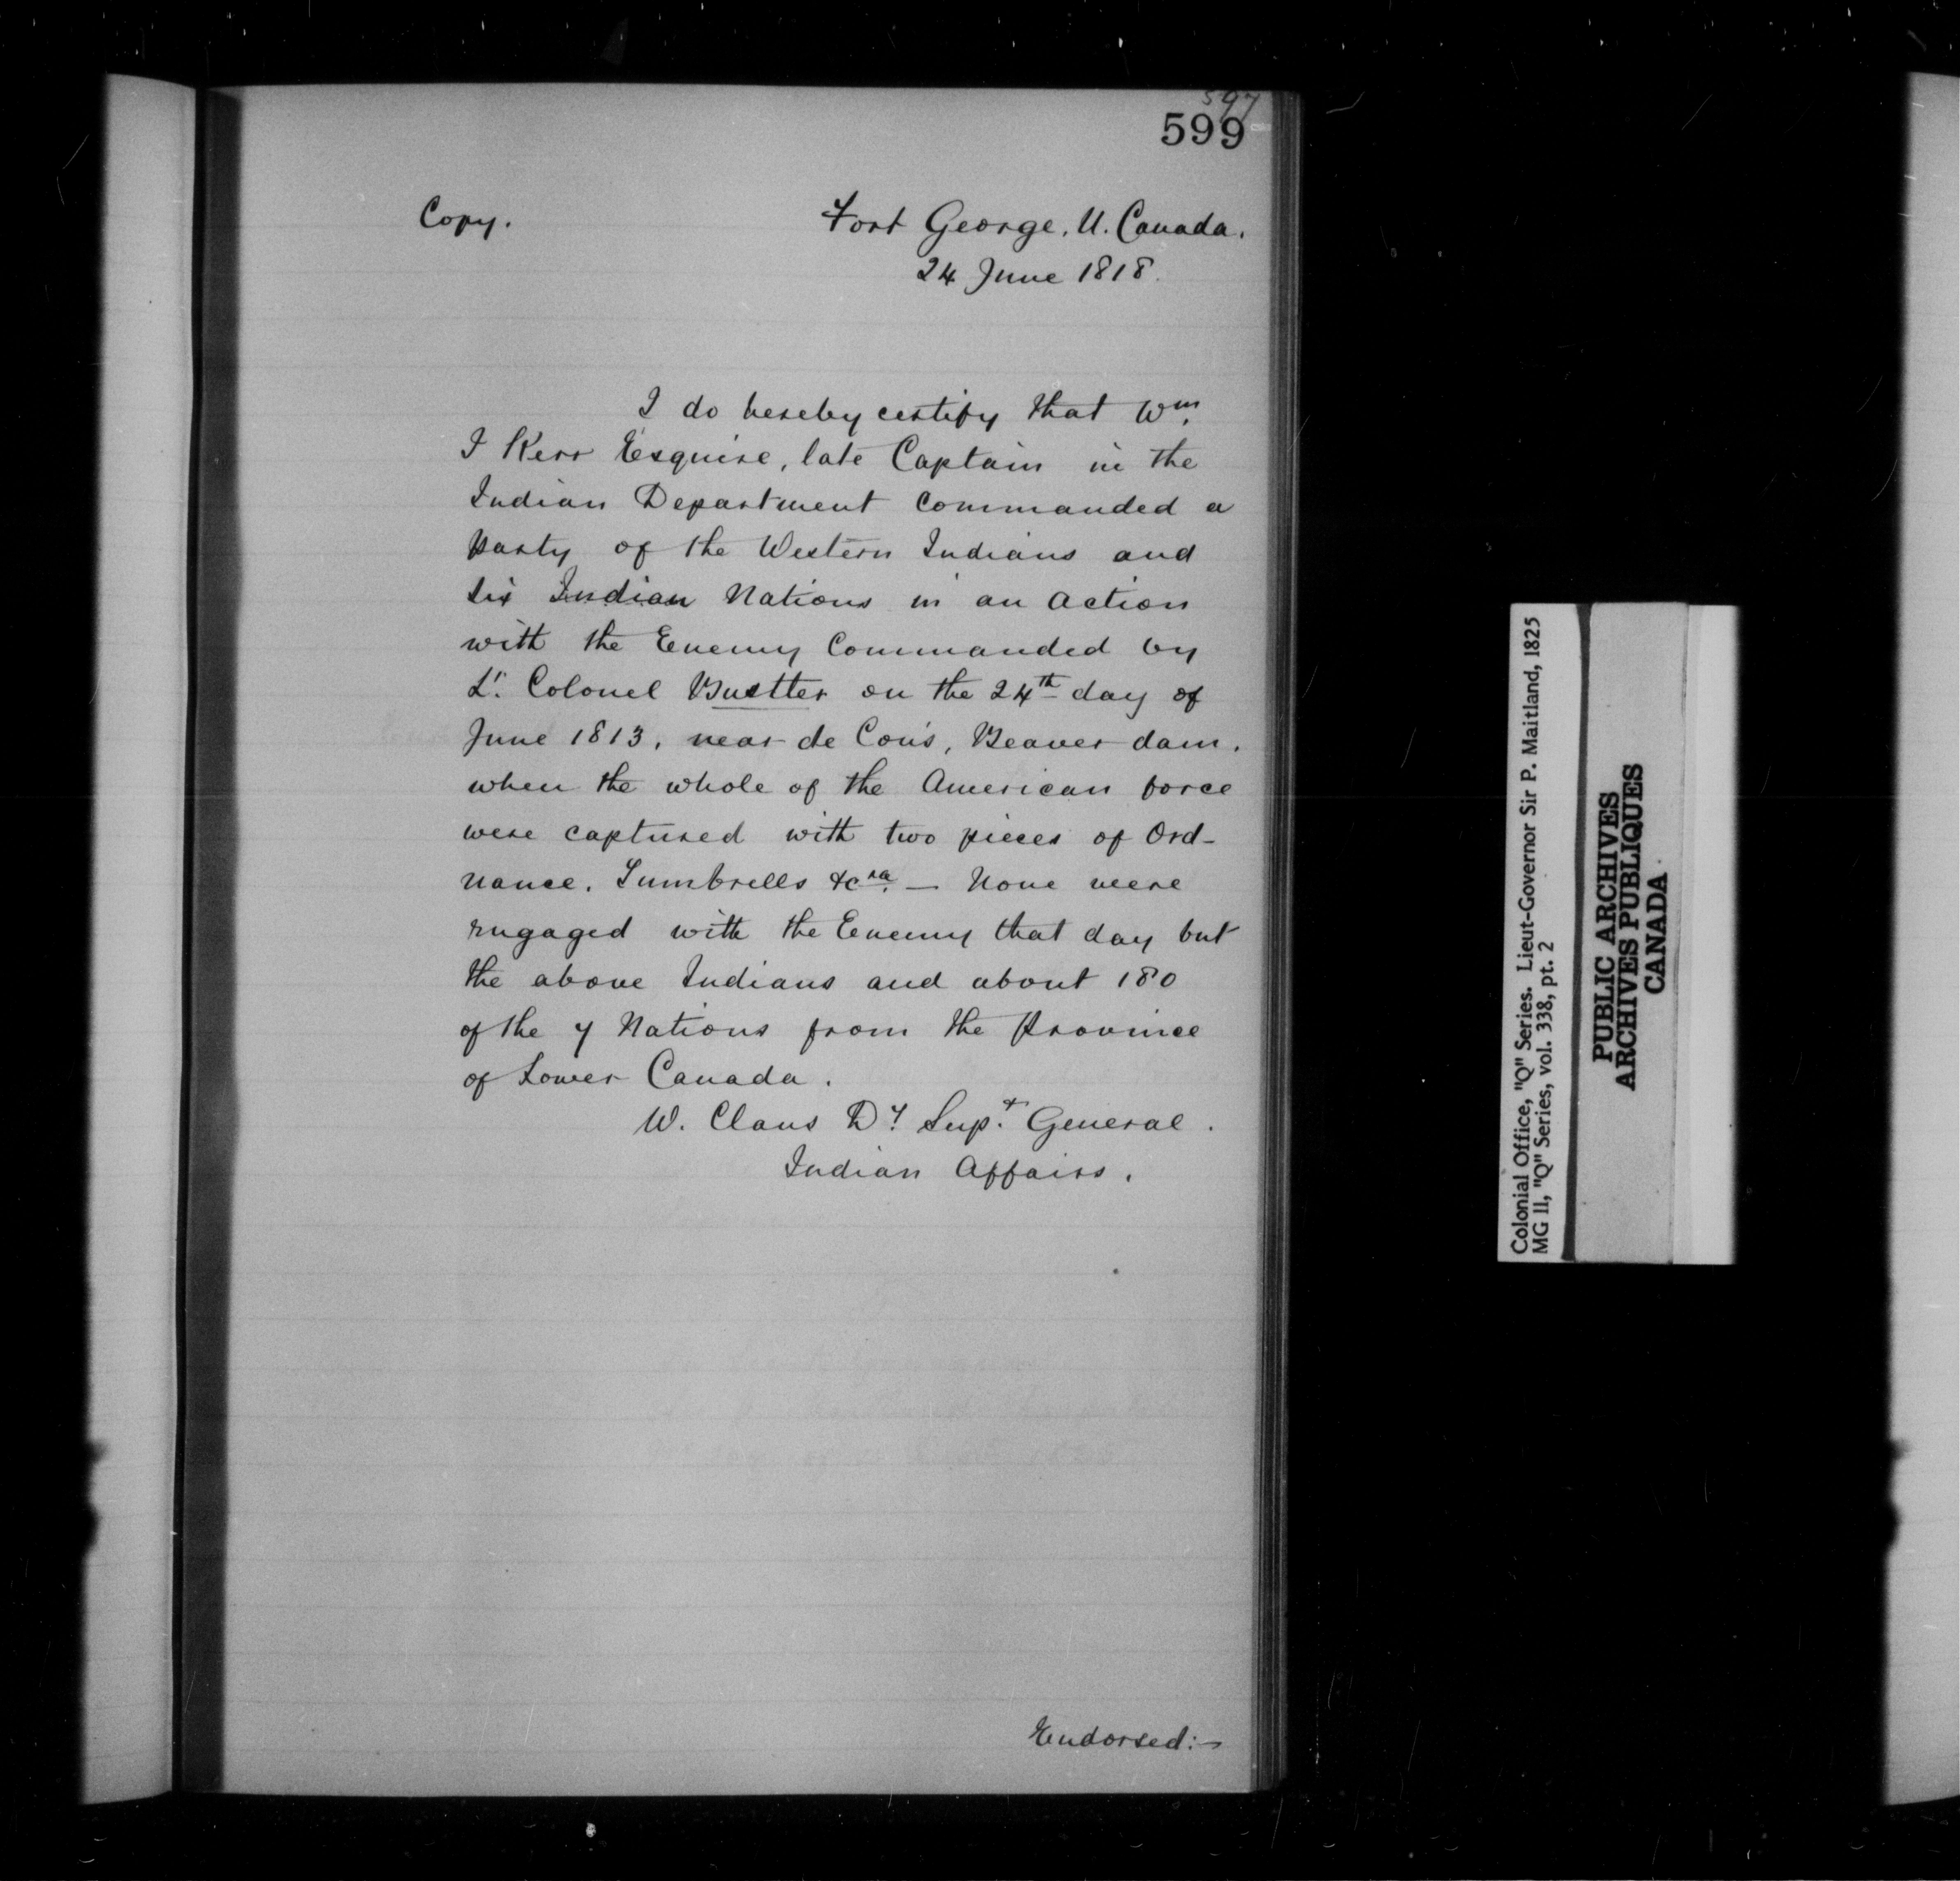 597
599
Copy.
Fort George, U. Canada.
24 June 1818.
I do hereby certify that Wm.
J Kerr Esquire, late Captain in the
Indian Department Commanded a
party of the Western Indians and
Six Indian Nations in an action
with the Enemy Commanded by
Lt. Colonel Bustler on the 24th day of
June 1813, near de Cou's, Beaver dam.
when the whole of the American force
were captured with two pieces of Ord-
nance. Tumbrells &cra. — None were
engaged with the Enemy that day but
the above Indians and about 180
of the 7 Nations from the Province
of Lower Canada.
W. Claus Dy. Supt. General.
Indian Affairs.
Endorsed:-
Colonial Office, "Q" Series. Lieut-Governor Sir P. Maitland, 1825
MG 11, "Q" Series, vol. 338, pt. 2
PUBLIC ARCHIVES
ARCHIVES PUBLIQUES
CANADA